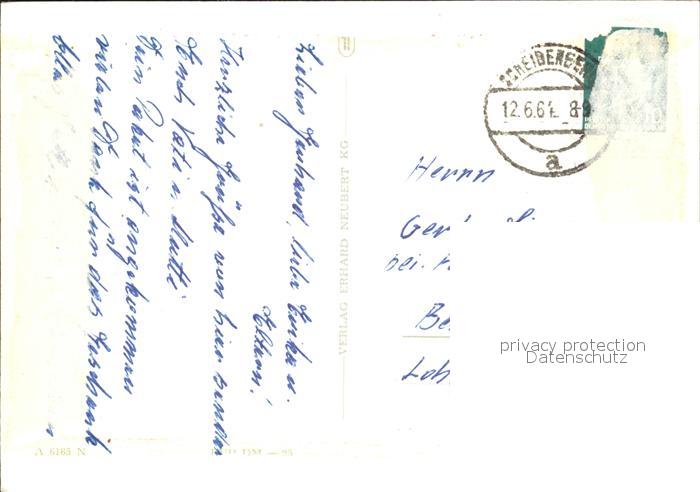 Lieber Gerhard, liebe Erika u.
Eltern!
Herzliche Grüße von hier senden
Euch Vati u. Mutti
Dein Paket ist angekommen
vielen Dank für das Geschenk
VERLAG ERHARD NEUBERT KG
A 6185 N
SCHEIBENBERG
12.6.61 8-9
a
Herrn
Ger
bei
Be
Loh
privacy protection
Datenschutz